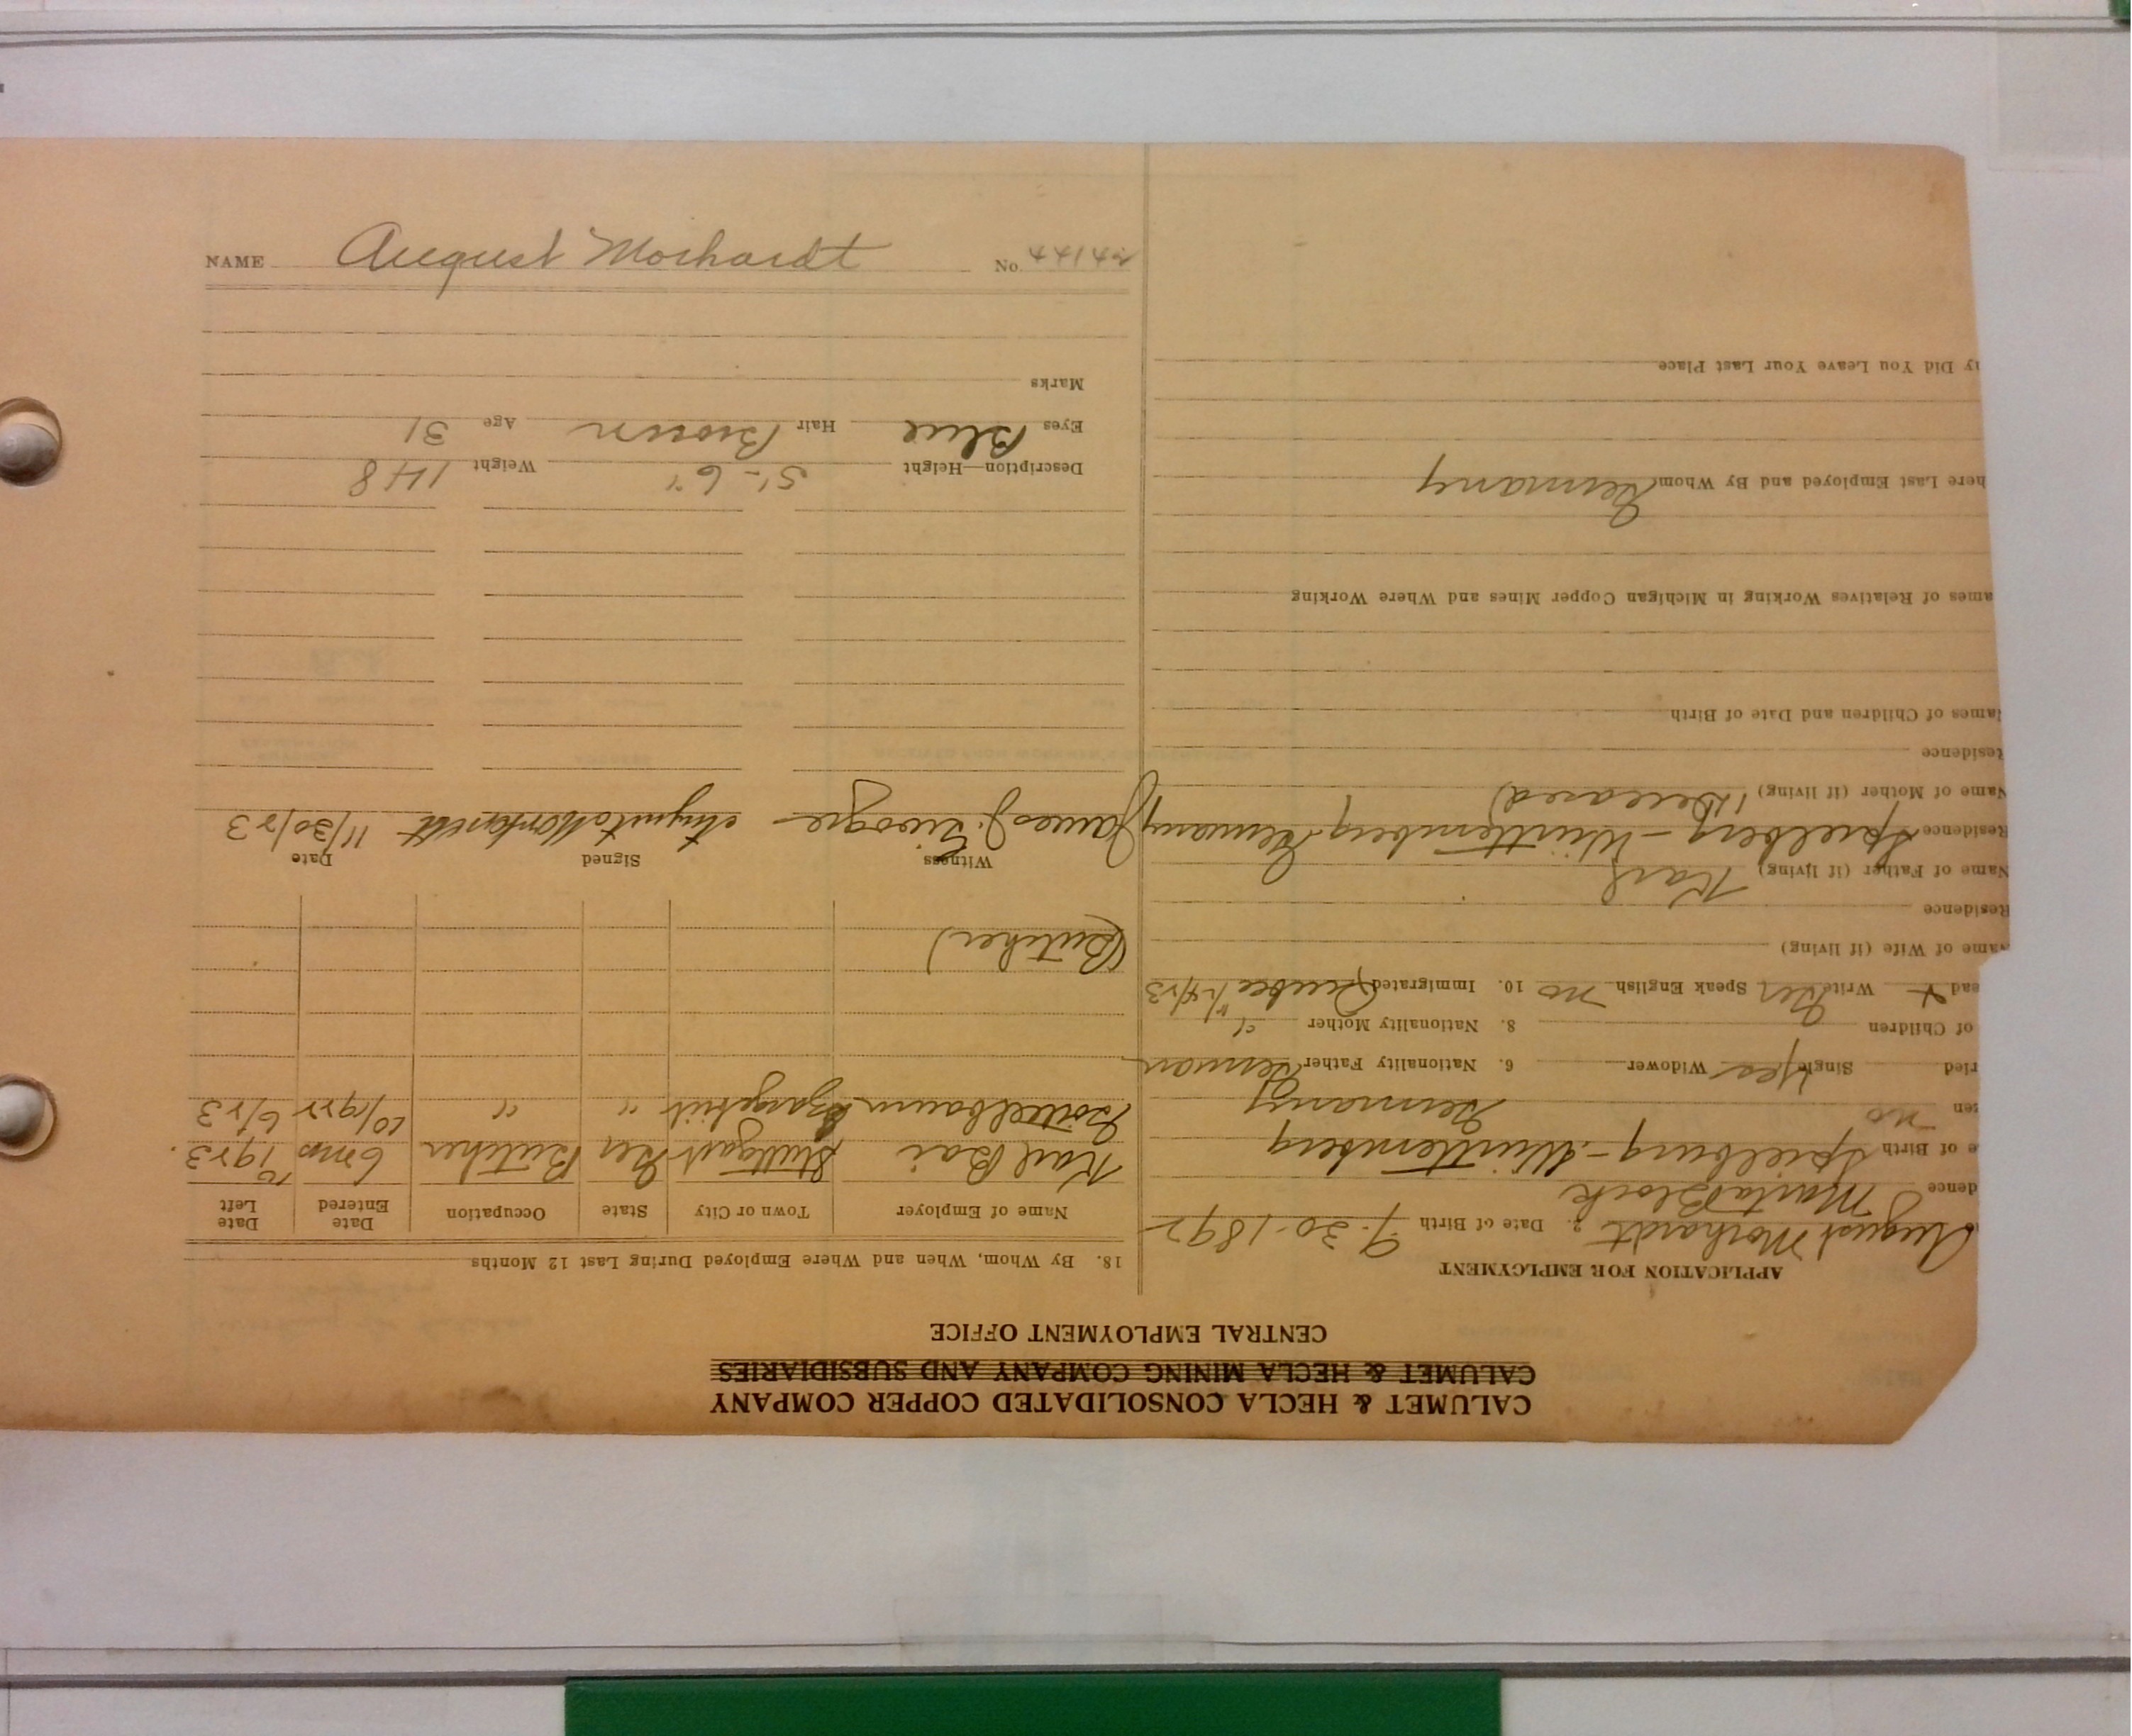 CALUMET & HECLA CONSOLIDATED COPPER COMPANY
CALUMET & HECLA MINING COMPANY AND SUBSIDIARIES
CENTRAL EMPLOYMENT OFFICE
APPLICATION FOR EMPLOYMENT
August Morhardt 2. Date of Birth 9-30-1892
dence Block
e of Birth Spielburg - Württemberg
zen no Germany
ried Single Yes Widower 6. Nationality Father German
of Children 8. Nationality Mother "
ead Write Ger Speak English no 10. Immigrated
Name of Wife (if living)
Residence
Name of Father (if living) Karl
Residence Spielberg - Württemberg Germany
Name of Mother (if living) (Deceased)
Residence
Names of Children and Date of Birth
ames of Relatives Working in Michigan Copper Mines and Where Working
here Last Employed and By Whom Germany
y Did You Leave Your Last Place
18. By Whom, When and Where Employed During Last 12 Months
Name of Employer Town or City State Occupation Date Entered Date Left
Karl Bai Stuttgart Ger Butcher 6 mos 1923.
" " 10/1922 6/23
(Butcher)
Witness Signed Date
James J. 11/30/23
Description—Height 5'-6" Weight 148
Eyes Blue Hair Brown Age 31
Marks
NAME August Morhardt No.